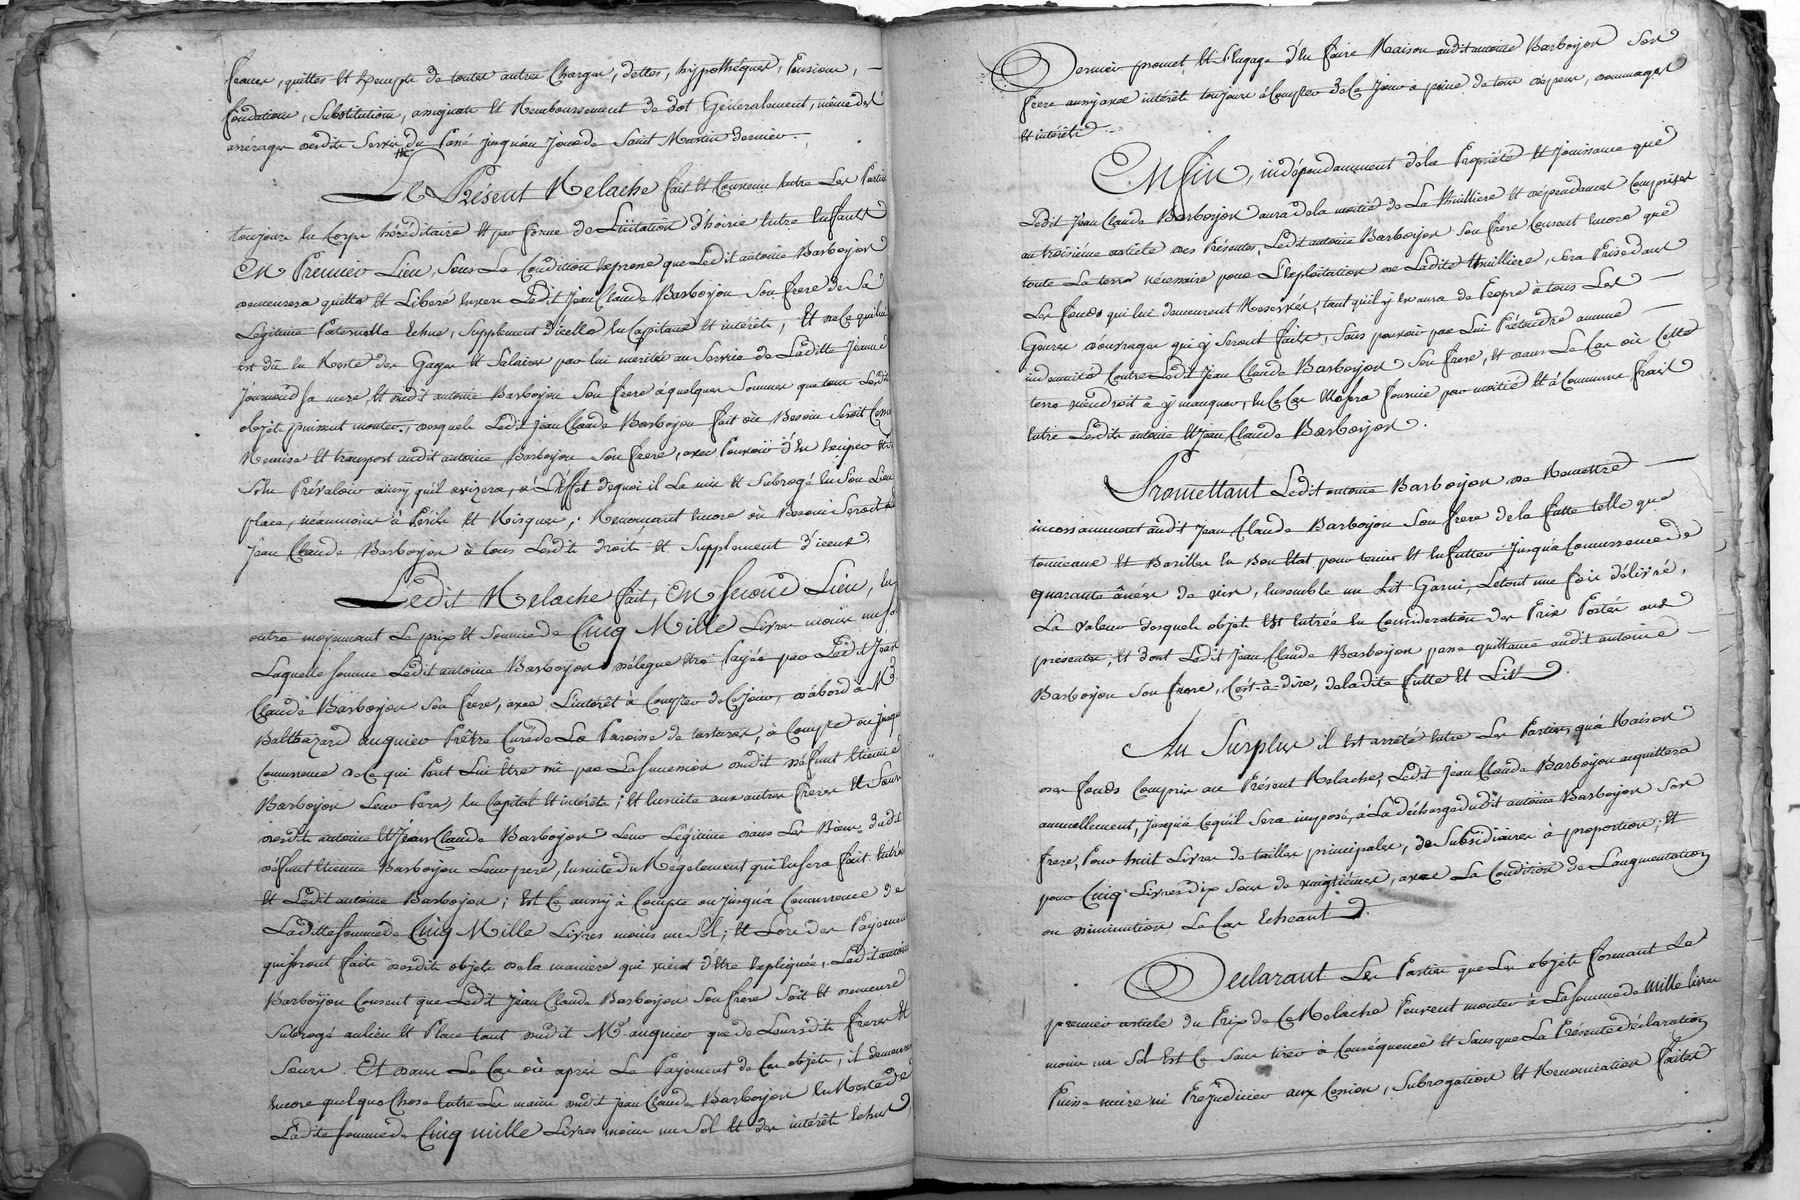 francs, quittes et Exempts de toutes autres Charges, dettes, hypothéques, Pensions, —
fondations, Substitutions, assignats et Remboursement de dot Généralement, même des
arrérages desdits Servis du Passé jusqu'au jour de Saint Martin dernier.
Le Présent Relache fait et Convenu Entre Les Parties
toujours En Corps héréditaire et par forme de Licitation d'hoirie Entre Enfants
En Premier Lieu, Sous La Condition Expresse que Ledit antoine Barboyon
demeurera quitte et Libéré Envers Ledit Jean Claude Barboyon Son frere de Sa
Légitime Paternelle Echue, Supplement d'icelle En Capitaux et intérêts, Et de Ce qui lui
Est dû En Reste des Gages et Salaires par lui mérités au Service de Laditte Jeanne
Journoud Sa mere, Et dudit antoine Barboyon Son frere à quelques Sommes que tous Lesdits
objets puissent monter, desquels Ledit Jean Claude Barboyon fait où Besoin Seroit Cession
Remise et transport audit antoine Barboyon Son frere, avec Pouvoir d'En Exiper Et
S'En Prévaloir ainsy qu'il avisera, à L'Effet dequoi il La mis et Subrogé En Son Lieu
place, néanmoins à Périls Et Risques; Renonçant Encore où Besoin Seroit
Jean Claude Barboyon à tous Lesdits droits Et Supplement d'iceux.
Ledit Relache fait, En Second Lieu, En
outre moyennant Le prix et Somme de Cinq Mille Livres moins un sol
Laquelle Somme Ledit antoine Barboyon délegue Etre Payée par Ledit Jean
Claude Barboyon Son frere, avec L'intérêt à Compter de Ce jour, d'abord à Mr
Balthazard auquier Prêtre Curé de La Paroisse de tartaras, à Compte ou jusqu'à
Concurrence de Ce qui Peut Lui Être dû par La Succession dudit défunt Etienne
Barboyon Leur Pere, En Capital Et intérêts; Et Ensuite aux autres freres Et Sœurs
desdits antoine Et Jean Claude Barboyon Leur Légitime dans Les Biens dudit
défunt Etienne Barboyon Leur pere, Ensuite du Réglement qui En Sera fait Entre
Et Ledit antoine Barboyon; Est Ce aussy à Compte ou jusqu'à Concurrence de
Laditte Somme de Cinq Mille Livres moins un Sol; Et Lors des Payements
qui Seront faits desdits objets de la maniere qui vient d'Etre Expliquée, Ledit antoine
Barboyon Consent que Ledit Jean Claude Barboyon Son frere Soit Et demeure
Subrogé au lieu Et Place tant dudit Mr auquier que de Leursdits freres Et
Sœurs. Et dans Le Cas où après Le Payement de Ces objets, il demeure
Encore quelque Chose Entre Les mains dudit Jean Claude Barboyon En Reste de
Ladite Somme de Cinq mille Livres moins un Sol Et des intérêts Echus,
Dernier promet, Et S'Engage d'En faire Raison audit antoine Barboyon Son
frere aussy avec intérêts toujours à Compter de Ce Jour à peine de tous depens, dommages
Et intérêts.
Enfin, indépendamment de la Propriété Et Jouissance que
Ledit Jean Claude Barboyon aura de la moitié de La thuilliere Et dépendances Comprises
au troisième article des Présentes, Ledit antoine Barboyon Son frere Consent Encore que
toute La terre nécessaire pour L'Exploitation de Ladite thuilliere, Sera Prise dans
Les fonds qui lui demeurent Reservés, tant qu'il y En aura de Propre à tous Les —
Genres d'ouvrages qui y Seront faits, Sans pouvoir par Lui Prétendre aucune —
indemnité Contre Ledit Jean Claude Barboyon Son frere, Et dans Le Cas où Cette
terre viendroit à y manquer, En Ce Cas Elle Sera fournie par moitié Et à Communs frais
Entre Lesdits antoine Et Jean Claude Barboyon.
Promettant Ledit antoine Barboyon de Remettre —
incessamment audit Jean Claude Barboyon Son frere de la futte telle que
tonneaux Et Barilles En Bon Etat pour tenir Et Enfutter Jusqu'à Concurrence de
quarante ânées de vin, Ensemble un Lit Garni, Le tout une fois délivré,
La valeur desquels objets Est Entrée En Considération des Prix Portés aux
présentes, Et dont Ledit Jean Claude Barboyon passe quittance audit antoine —
Barboyon Son frere, C'est-à-dire, de la dite futte Et Lit.
Au Surplus il Est arrêté Entre Les Parties, qu'à Raison
des fonds Compris au Présent Relache, Ledit Jean Claude Barboyon acquittera
annuellement, Jusqu'à Ce qu'il Sera imposé, à La décharge dudit antoine Barboyon Son
frere, Pour huit Livres de tailles principales, des Subsidiaires à proportion, Et
pour Cinq Livres dix Sous de vingtièmes, avec La Condition de L'augmentation
ou diminution Le Cas Echeant.
Déclarant Les Parties que Les objets formant Le
premier article du Prix de Ce Relache Peuvent monter à La Somme de Mille Livres
moins un Sol Est Ce Sans tirer à Conséquence Et Sans que La Présente déclaration
Puisse nuire ni Préjudicier aux Cession, Subrogation Et Renonciation faites